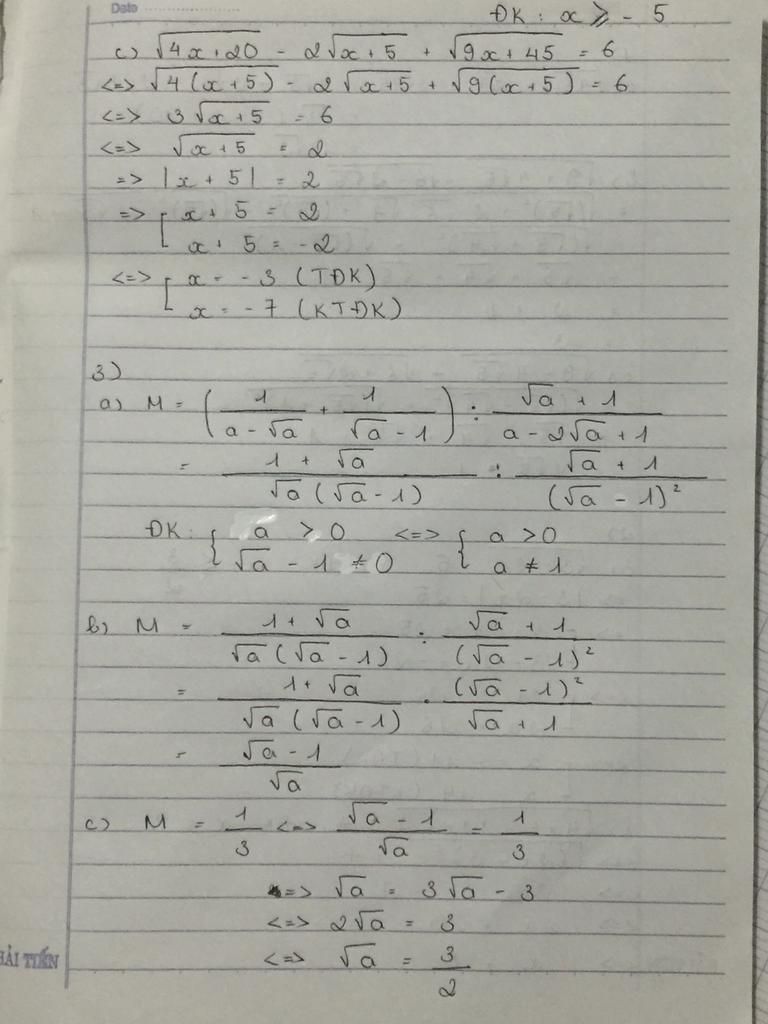 Date
ĐK : x ⩾ - 5
c) √(4x+20) - 2√(x+5) + √(9x+45) = 6
<=> √(4(x+5)) - 2√(x+5) + √(9(x+5)) = 6
<=> 3√(x+5) = 6
<=> √(x+5) = 2
=> |x + 5| = 2
=> [ x + 5 = 2
x + 5 = -2
<=> [ x = -3 (TĐK)
x = -7 (KTĐK)
3)
a) M = (1/(a - √a) + 1/(√a - 1)) : (√a + 1)/(a - 2√a + 1)
= (1 + √a)/(√a (√a - 1)) : (√a + 1)/(√a - 1)²
ĐK : { a > 0 <=> { a > 0
√a - 1 ≠ 0 a ≠ 1
b) M = (1 + √a)/(√a (√a - 1)) : (√a + 1)/(√a - 1)²
= (1 + √a)/(√a (√a - 1)) . (√a - 1)²/(√a + 1)
= (√a - 1)/√a
c) M = 1/3 <=> (√a - 1)/√a = 1/3
<=> √a = 3√a - 3
<=> 2√a = 3
<=> √a = 3/2
HẢI TIẾN